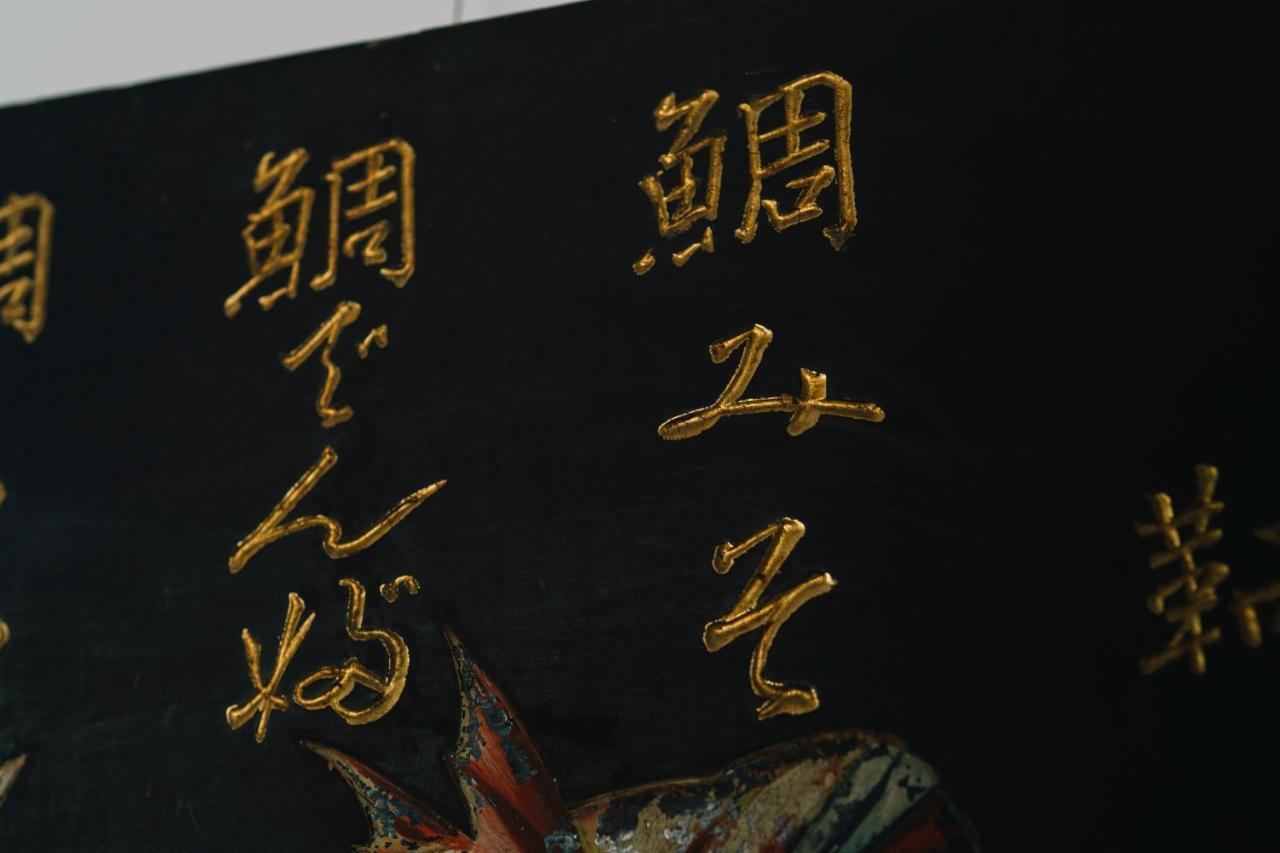 鯛みそ
鯛でんぶ